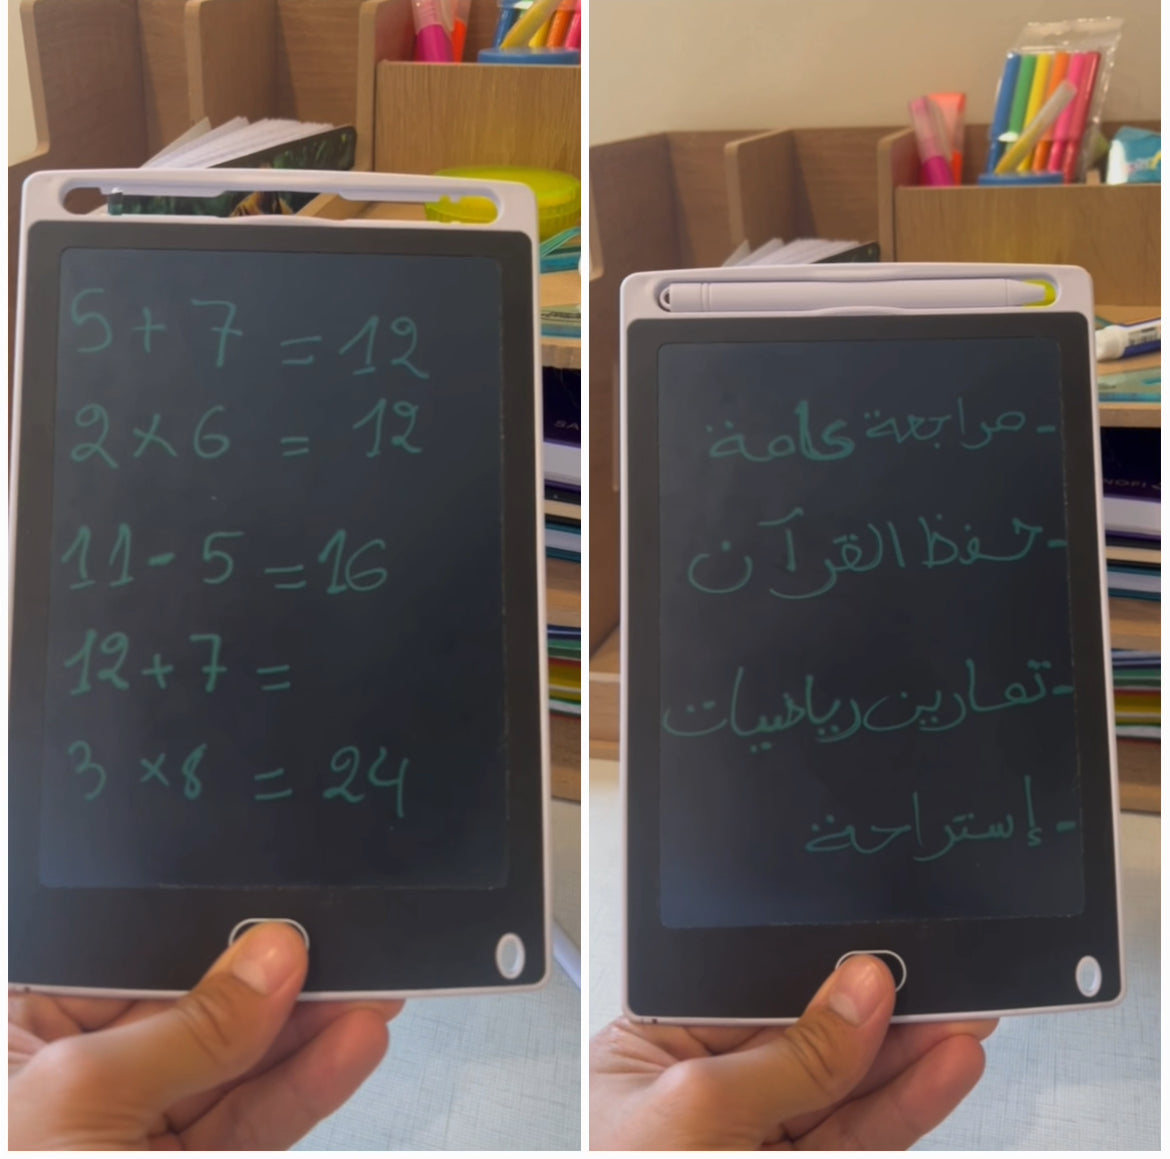 5 + 7 = 12
2 × 6 = 12
11 - 5 = 16
12 + 7 =
3 × 8 = 24
- مراجعة عامة
- حفظ القرآن
- تمارين رياضيات
- إستراحة